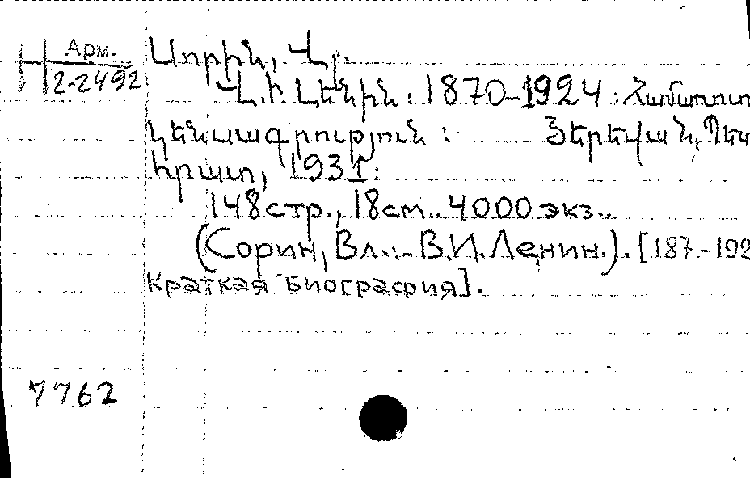 Арм. Սորին, Վլ.
Н 2-2492
Վ. Ի. Լենին. 1870-1924: Համառոտ
կենսագրություն: Յերեվան, Պետ
հրատ, 1931.
148 стр., 18 см. 4000 экз.
(Сорин, Вл. - В.И. Ленин.). [187-192
Краткая биография].
7762